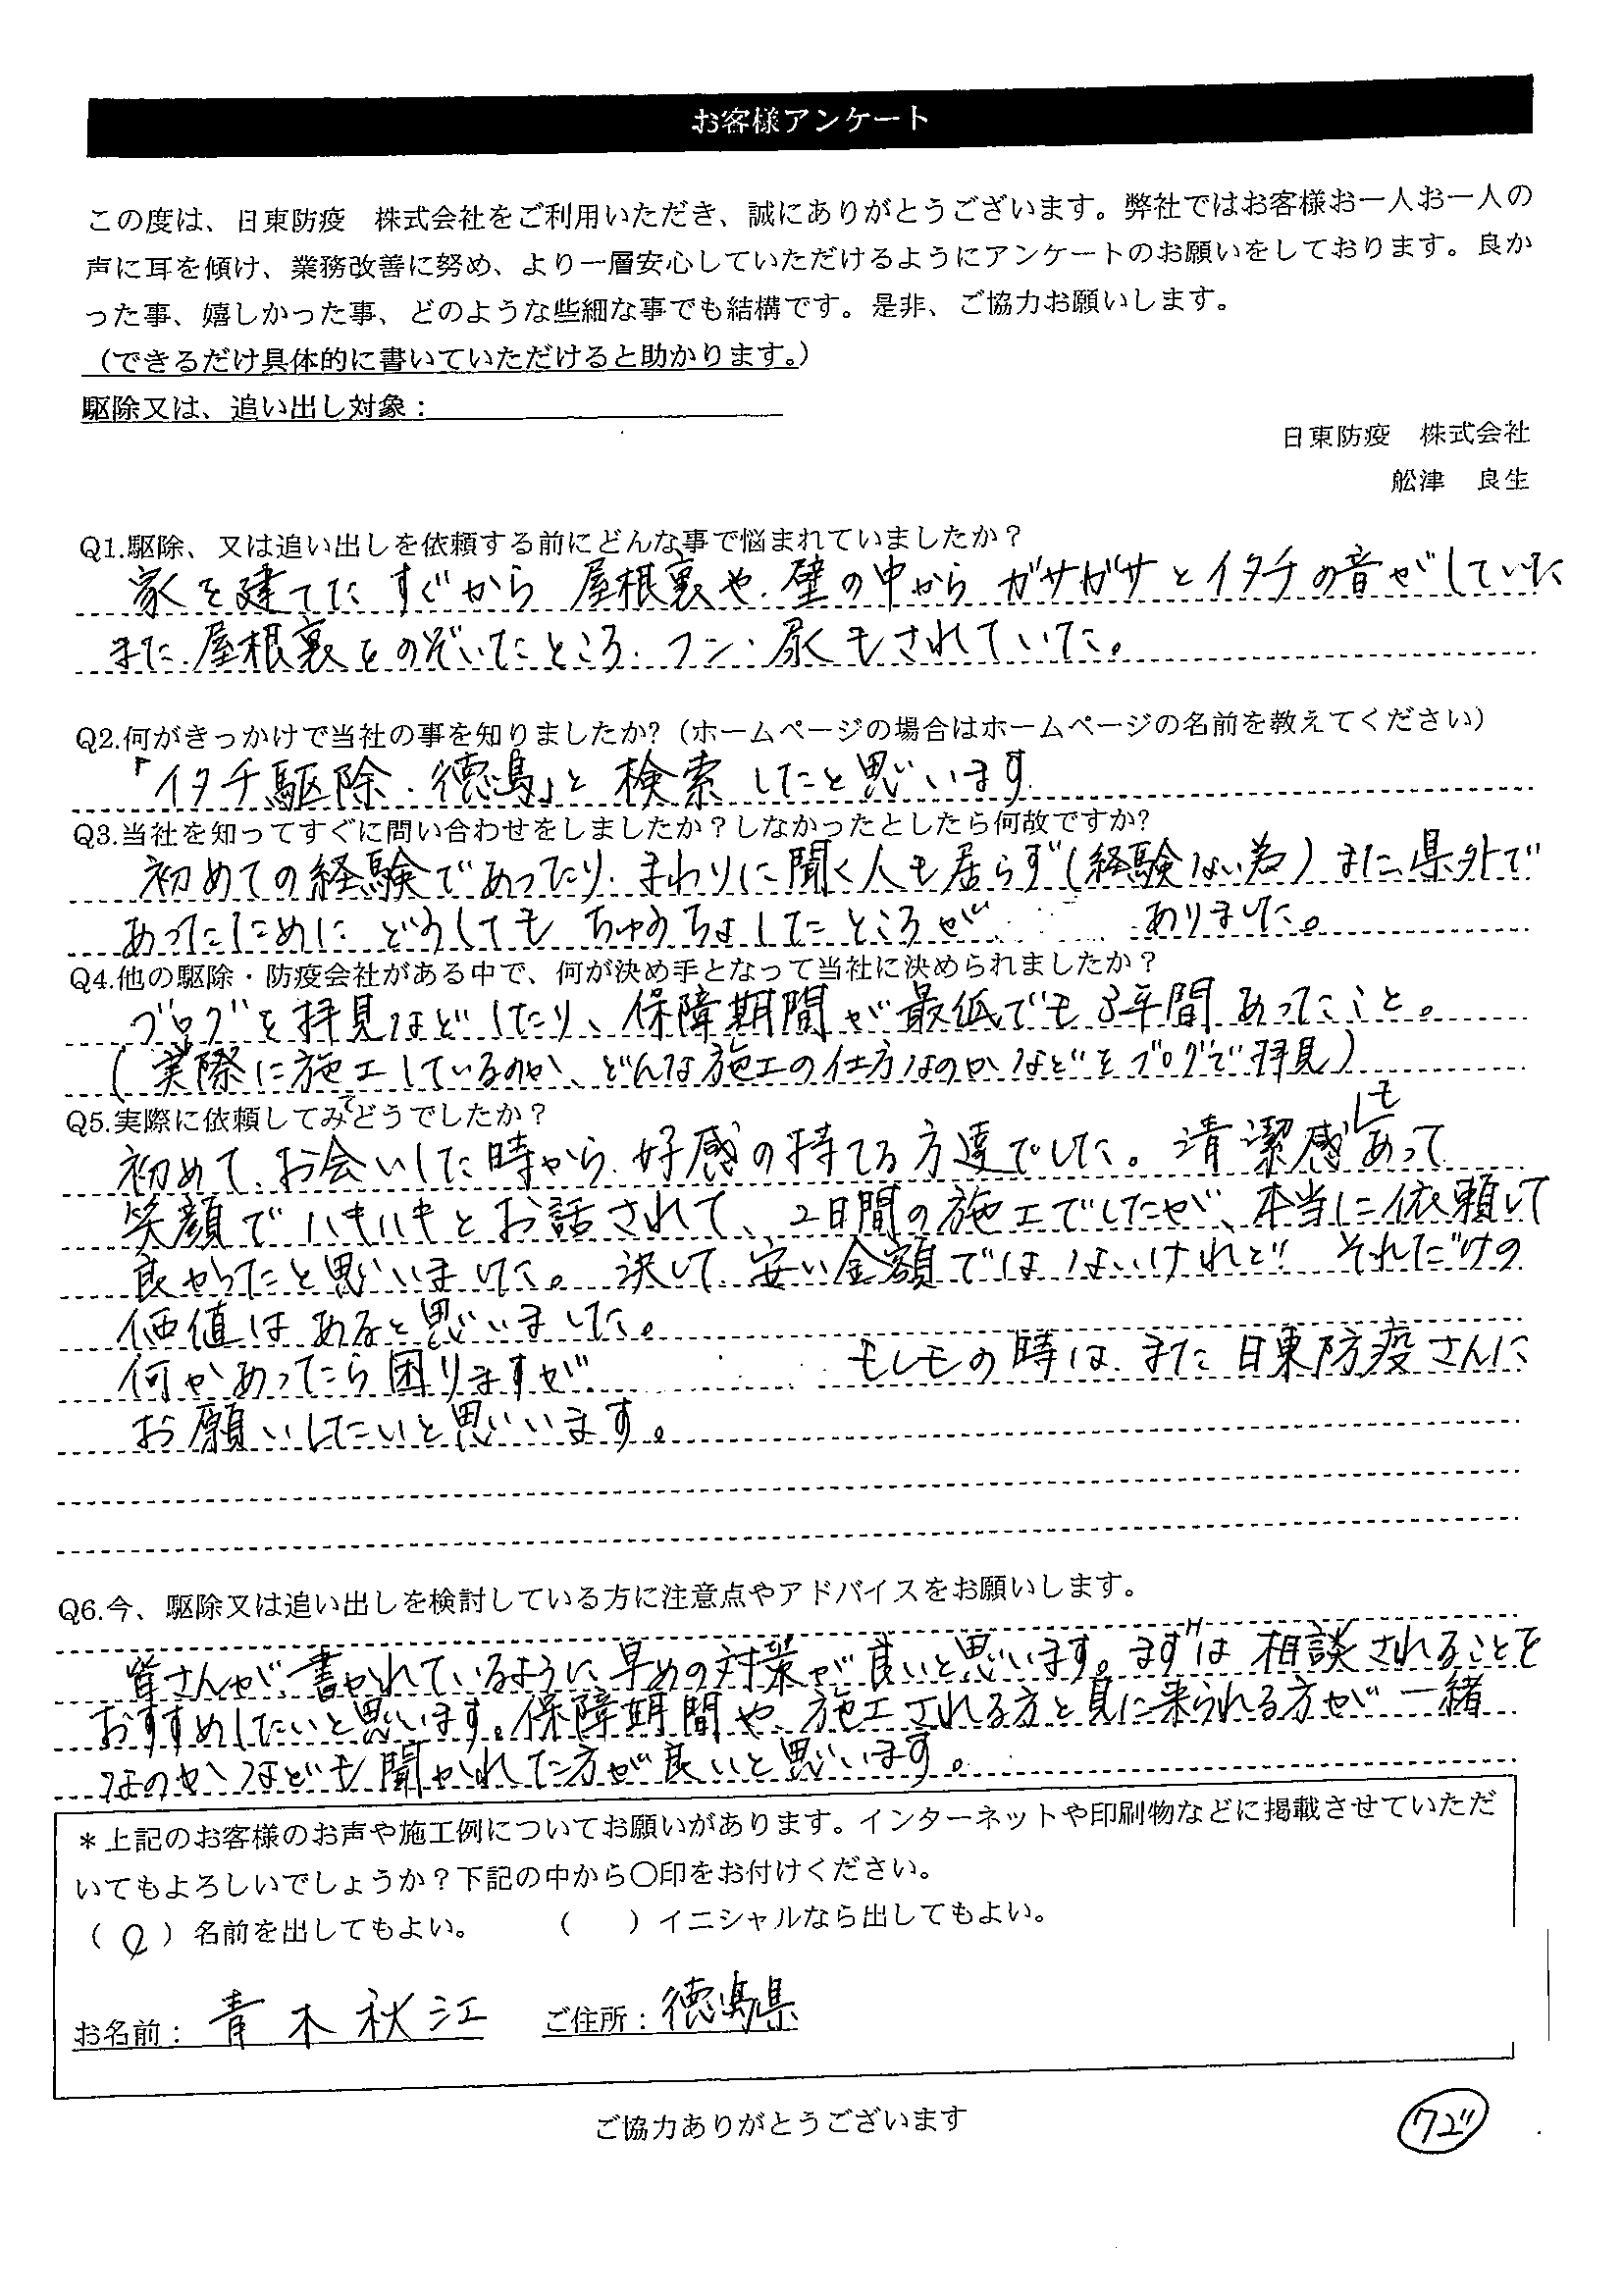 お客様アンケート
この度は、日東防疫　株式会社をご利用いただき、誠にありがとうございます。弊社ではお客様お一人お一人の
声に耳を傾け、業務改善に努め、より一層安心していただけるようにアンケートのお願いをしております。良か
った事、嬉しかった事、どのような些細な事でも結構です。是非、ご協力お願いします。
（できるだけ具体的に書いていただけると助かります。）
駆除又は、追い出し対象：
日東防疫　株式会社
舩津　良生
Q1.駆除、又は追い出しを依頼する前にどんな事で悩まれていましたか？
家を建てた すぐから 屋根裏や、壁の中から ガサガサとイタチの音がしていた
また、屋根裏をのぞいたところ、フン・尿もされていた。
Q2.何がきっかけで当社の事を知りましたか?（ホームページの場合はホームページの名前を教えてください）
「イタチ駆除・徳島」と検索したと思います
Q3.当社を知ってすぐに問い合わせをしましたか？しなかったとしたら何故ですか?
初めての経験であったり、まわりに聞く人も居らず（経験ない為）また、県外で
あったためにどうしても ちゅうちょしたところが ありました。
Q4.他の駆除・防疫会社がある中で、何が決め手となって当社に決められましたか？
ブログを拝見などしたり、保障期間が最低でも3年間あったこと。
（実際に施工しているのか、どんな施工の仕方なのかなどをブログで拝見）
Q5.実際に依頼してみてどうでしたか？
初めてお会いした時から、好感の持てる方達でした。清潔感もあって
笑顔でハキハキとお話されて、2日間の施工でしたが、本当に依頼して
良かったと思いました。決して安い金額ではないけれど!! それだけの
価値はあると思いました。
何かあったら困りますが もしもの時は、また日東防疫さんに
お願いしたいと思います。
Q6.今、駆除又は追い出しを検討している方に注意点やアドバイスをお願いします。
皆さんが書かれているように早めの対策が良いと思います。まずは相談されることを
おすすめしたいと思います。保障期間や、施工される方と見に来られる方が一緒
なのかなども聞かれた方が良いと思います。
＊上記のお客様のお声や施工例についてお願いがあります。インターネットや印刷物などに掲載させていただ
いてもよろしいでしょうか？下記の中から〇印をお付けください。
（ ○ ）名前を出してもよい。　（　　）イニシャルなら出してもよい。
お名前： 青木秋江　ご住所：徳島県
ご協力ありがとうございます